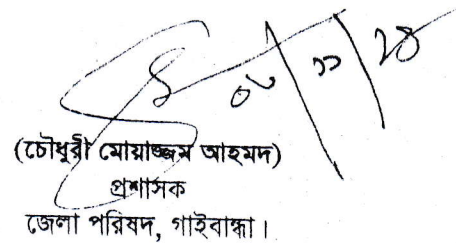 (চৌধুরী মোয়াজ্জম আহমদ)
প্রশাসক
জেলা পরিষদ, গাইবান্ধা।